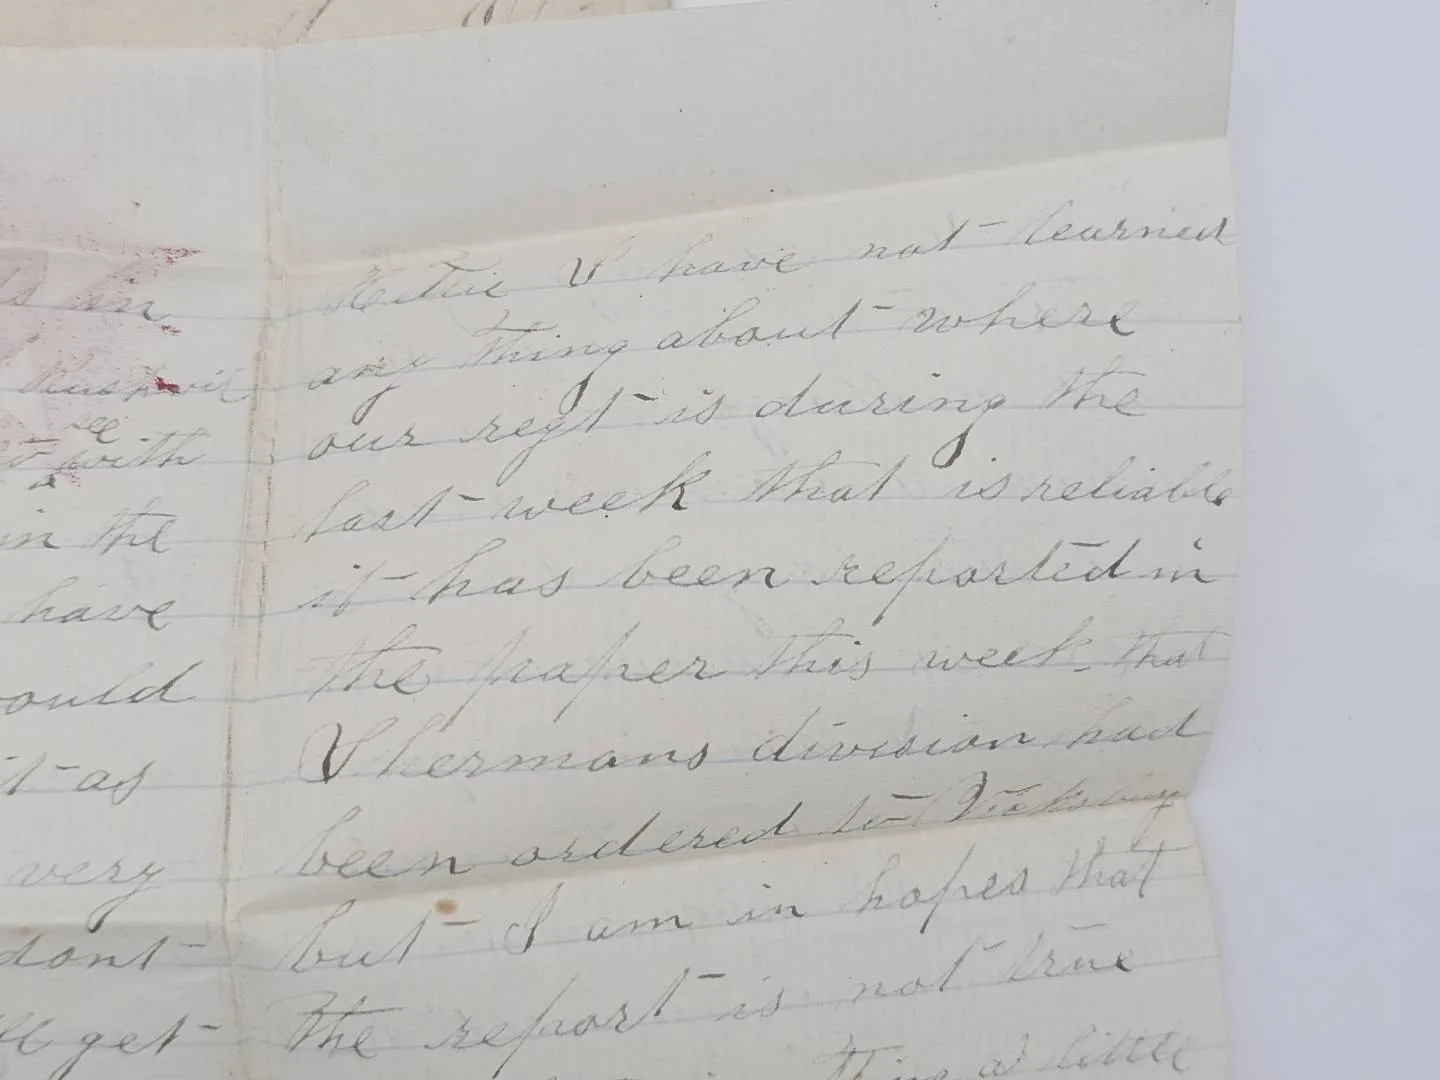 in
see
with
in the
have
ould
t as
very
dont
get
Hettie I have not learned
any thing about where
our regt is during the
last week that is reliable
it has been reported in
the paper this week that
Shermans division had
been ordered to Vicksburg
but I am in hopes that
the report is not true
a little